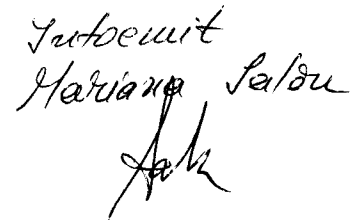 Intocmit
Mariana Saldu